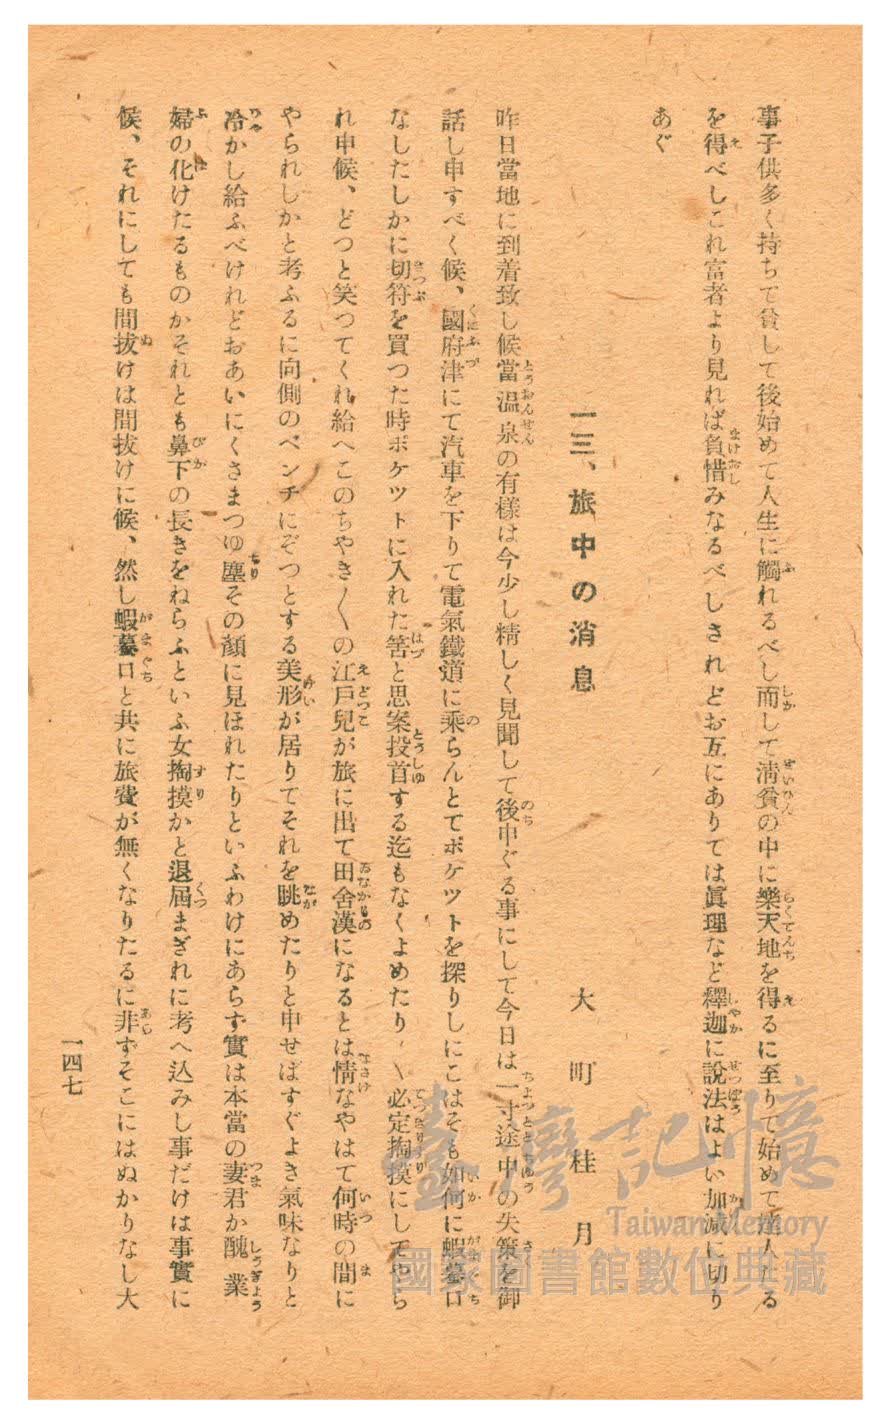 事子供多く持ちて貧して後始めて人生に觸れるべし而して淸貧の中に樂天地を得るに至りて始めて達人たる
を得べしこれ富者より見れば負惜みなるべしされどお互にありては眞理など釋迦に說法はよい加減に切り
あぐ
一三、旅中の消息
大町桂月
昨日當地に到着致し候當温泉の有樣は今少し精しく見聞して後申ぐる事にして今日は一寸途中の失策を御
話し申すべく候、國府津にて汽車を下りて電氣鐵道に乘らんとてポケツトを探りしにこはそも如何に蝦蟇口
なしたしかに切符を買つた時ポケツトに入れた筈と思案投首する迄もなくよめたり〱必定掏摸にしてやら
れ申候、どつと笑つてくれ給へこのちやき〱の江戶兒が旅に出て田舍漢になるとは情なやはて何時の間に
やられしかと考ふるに向側のベンチにぞつとする美形が居りてそれを眺めたりと申せばすぐよき氣味なりと
冷かし給ふべけれどおあいにくさまつゆ塵その顏に見ほれたりといふわけにあらず實は本當の妻君か醜業
婦の化けたるものかそれとも鼻下の長きをねらふといふ女掏摸かと退屈まぎれに考へ込みし事だけは事實に
候、それにしても間拔けは間拔けに候、然し蝦蟇口と共に旅費が無くなりたるに非ずそこにはぬかりなし大
一四七
臺灣記憶
Taiwan Memory
國家圖書館數位典藏